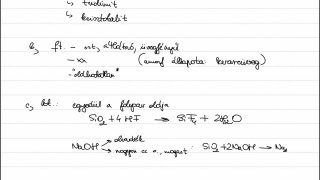 ↳ tridimit
↳ krisztobalit
b, ft. - szt, átlátszó, üvegfényű
- xx (amorf állapota kvarcüveg)
- "oldhatatlan"
c, kt.: egyedül a folysav oldja
SiO₂ + 4HF → SiF₄ + 2H₂O
NaOH olvadék
nagyon cc. : SiO₂ + 2NaOH → Na₂